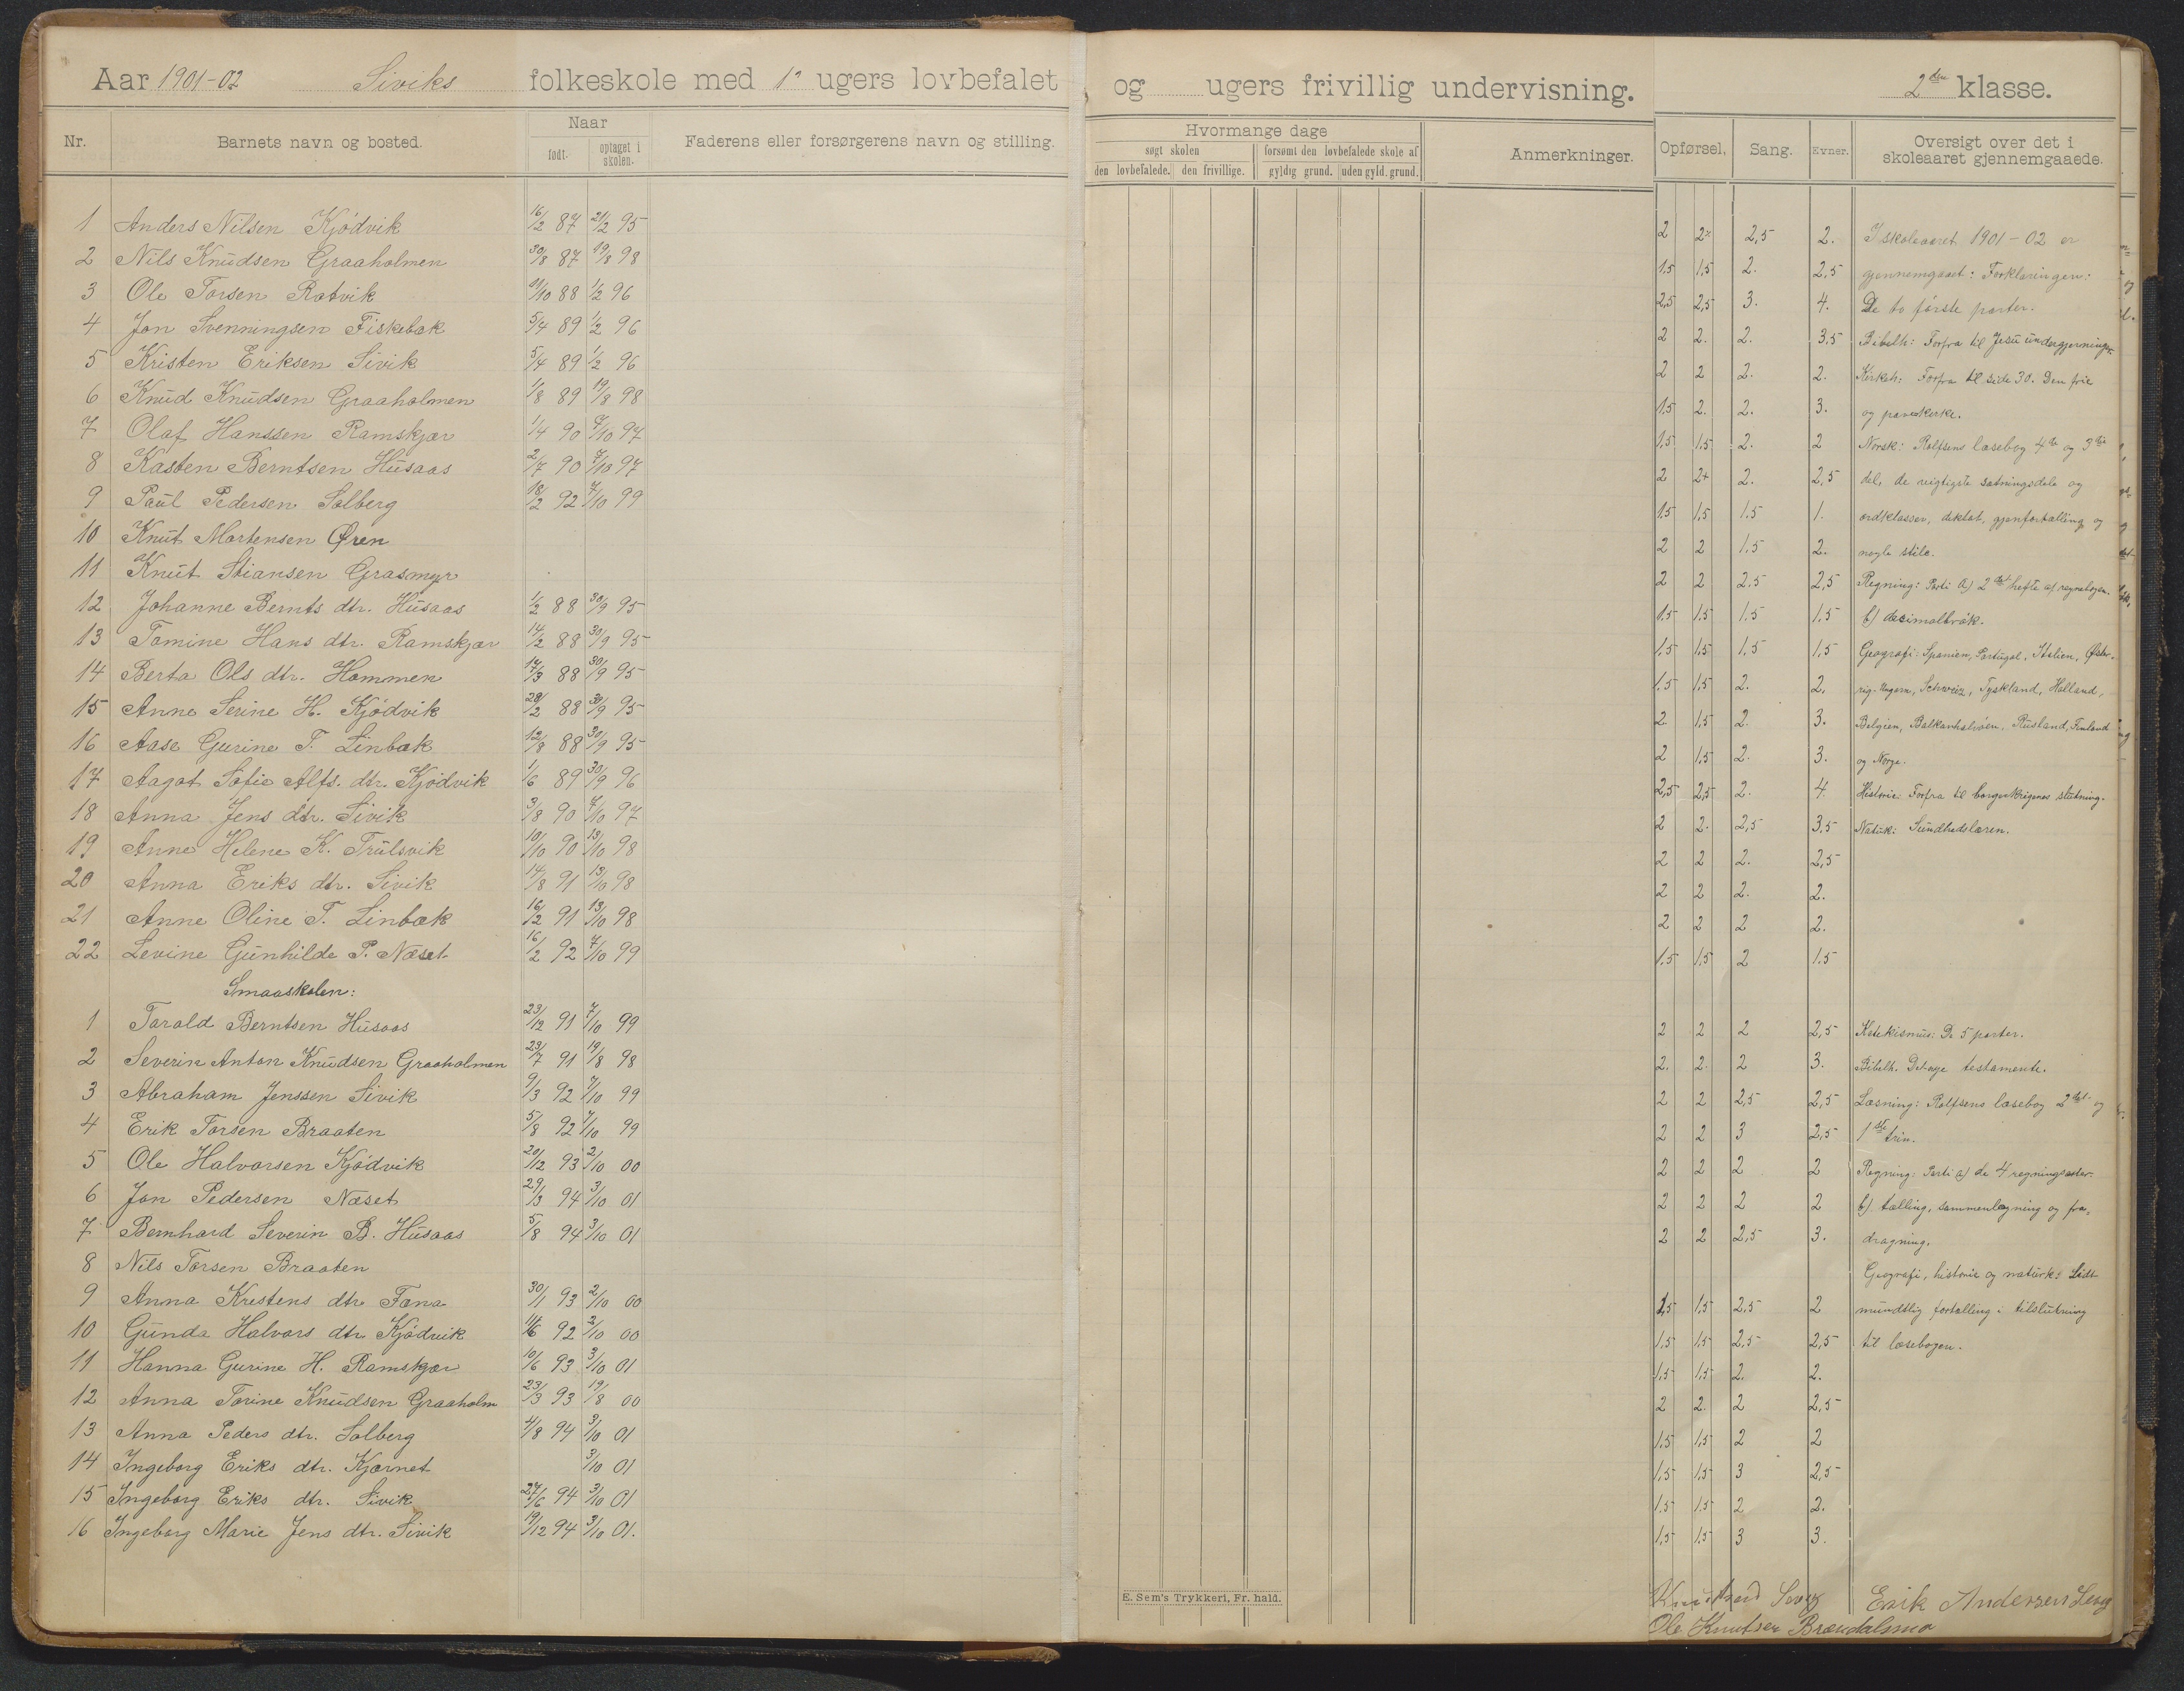 Aar 1901-02 Siviks folkeskole med 12 ugers lovbefalet og ugers frivillig undervisning. 2den klasse.
Nr. Barnets navn og bosted. Naar født. optaget i skolen. Faderens eller forsørgerens navn og stilling.
Hvormange dage søgt skolen den lovbefalede. den frivillige. forsømt den lovbefalede skole af gyldig grund. uden gyld. grund. Anmerkninger.
Opførsel. Sang. Evner. Oversigt over det i skoleaaret gjennemgaaede.
1 Anders Nilsen Kjødvik 16/2 87 21/2 95
2 Nils Knudsen Graaholmen 30/8 87 19/8 98
3 Ole Torsen Ratvik 88 1/2 96
4 Jon Svenningsen Fiskebæk 5/4 89 1/2 96
5 Kristen Eriksen Sivik 5/4 89 1/2 96
6 Knud Knudsen Graaholmen 1/8 89 19/8 98
7 Olaf Hanssen Ramskjær 1/4 90 7/10 97
8 Kasten Berntsen Husaas 2/7 90 7/10 97
9 Paul Pedersen Solberg 18/2 92 7/10 99
10 Knut Mortensen Øren
11 Knut Stiansen Grasmyr
12 Johanne Bernts dtr. Husaas 1/2 88 30/9 95
13 Tomine Hans dtr. Ramskjær 14/2 88 30/9 95
14 Berta Ols dtr. Hommen 17/3 88 30/9 95
15 Anne Serine H. Kjødvik 28/2 88 30/9 95
16 Aase Gurine T. Linbæk 12/8 88 30/9 95
17 Aagot Sofie Alfs. dtr. Kjødvik 1/6 89 30/9 96
18 Anna Jens dtr. Sivik 3/8 90 7/10 97
19 Anne Helene K. Trulsvik 10/10 90 13/10 98
20 Anna Eriks dtr. Sivik 14/8 91 13/10 98
21 Anne Oline T. Linbæk 16/2 91 13/10 98
22 Levine Gunhilde P. Næset 16/2 92 7/10 99
Smaaskolen:
1 Tarald Berntsen Husaas 23/12 91 7/10 99
2 Severin Anton Knudsen Graaholmen 23/7 91 19/8 98
3 Abraham Jenssen Sivik 9/3 92 7/10 99
4 Erik Torsen Braaten 5/8 92 7/10 99
5 Ole Halvorsen Kjødvik 20/12 93 2/10 00
6 Jon Pedersen Næset 29/3 94 3/10 01
7 Bernhard Severin B. Husaas 5/8 94 3/10 01
8 Nils Torsen Braaten
9 Anna Kristens dtr Fana 30/1 93 2/10 00
10 Gunda Halvors dtr Kjødvik 92 2/10 00
11 Hanna Gurine H. Ramskjær 10/6 93 3/10 01
12 Anna Torine Knudsen Graaholm 23/3 93 19/8 00
13 Anna Peders dtr. Solberg 4/8 94 3/10 01
14 Ingeborg Eriks dtr. Kjærnet 3/10 01
15 Ingeborg Eriks dtr. Sivik 27/6 94 3/10 01
16 Ingeborg Marie Jens dtr. Sivik 19/12 94 3/10 01.
E. Sem's Trykkeri, Fr. hald.
2 2 2,5 2. I skoleaaret 1901-02 er
1,5 1,5 2. 2,5 gjennemgaaet: Forklaringen:
2,5 2,5 3. 4. De to første parter.
2 2. 2. 3.5 Bibelh: Forfra til Jesu undergjerninger
2 2 2. 2. Kirkeh: Forfra til side 30. Den frie
1.5 2. 2. 3. og pavekirke.
1.5 1,5 2. 2 Norsk: Rolfsens læsebog 4de og 3die
2 2+ 2. 2,5 del, de vigtigste sætningsdele og
1.5 1,5 1.5 1. ordklasser, diktat, gjenfortælling og
2 2 1.5 2. nogle stile.
2 2 2.5 2,5 Regning: Parti a) 2det hefte af regnebogen.
1.5 1.5 1.5 1,5 b) decimalbrøk.
1.5 1.5 1.5 1.5 Geografi: Spanien, Portugal, Italien, Øster-
1.5 1.5 2. 2. rig-Ungarn, Schweiz, Tyskland, Holland,
2. 1.5 2. 3. Belgien, Balkanhalvøen, Rusland, Finland
2 1.5 2. 3. og Norge.
2,5 2,5 2. 4. Historie: Forfra til borgerkrigenes slutning.
2 2. 2,5 3,5 Naturk: Sundhedslæren.
2 2 2. 2,5
2 2 2. 2.
2 2 2 2.
1.5 1.5 2 1.5
2 2 2 2,5 Katekismus: De 5 parter.
2. 2. 2 3. Bibelh. Det nye testamente.
2 2 2,5 2,5 Læsning: Rolfsens læsebog 2det og
2 2 3 2,5 1ste trin.
2 2 2 2 Regning: Parti a) de 4 regningsarter.
2 2 2 2 b). tælling, sammenlægning og fra-
2 2 2,5 3. dragning.
Geografi, historie og naturk: Lidt
1,5 1,5 2,5 2 mundtlig fortælling i tilslutning
1,5 1,5 2,5 2,5 til læsebogen.
1,5 1,5 2. 2.
2 2. 2 2,5
1,5 1,5 2 2
1,5 1,5 3 2,5
1,5 1,5 2 2.
1,5 1,5 3 3.
Erik Andersen
Ole Knutsen Brændalsmo